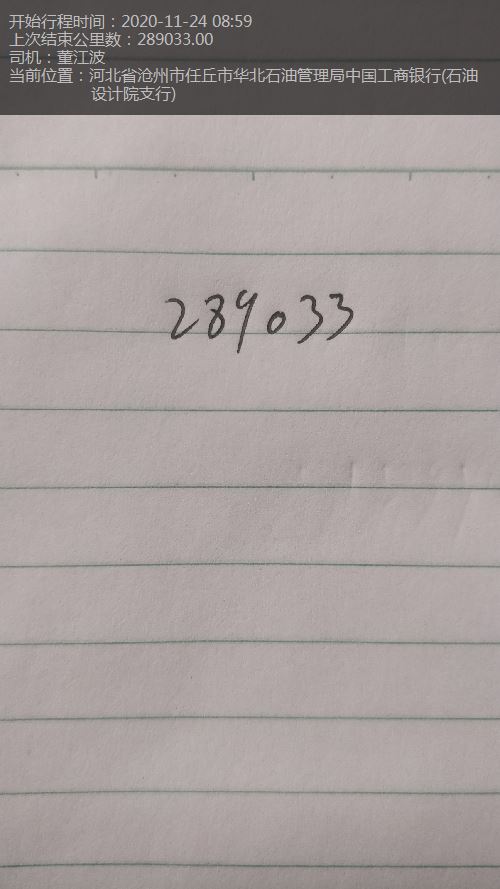 开始行程时间：2020-11-24 08:59
上次结束公里数：289033.00
司机：董江波
当前位置：河北省沧州市任丘市华北石油管理局中国工商银行(石油
设计院支行)
289033